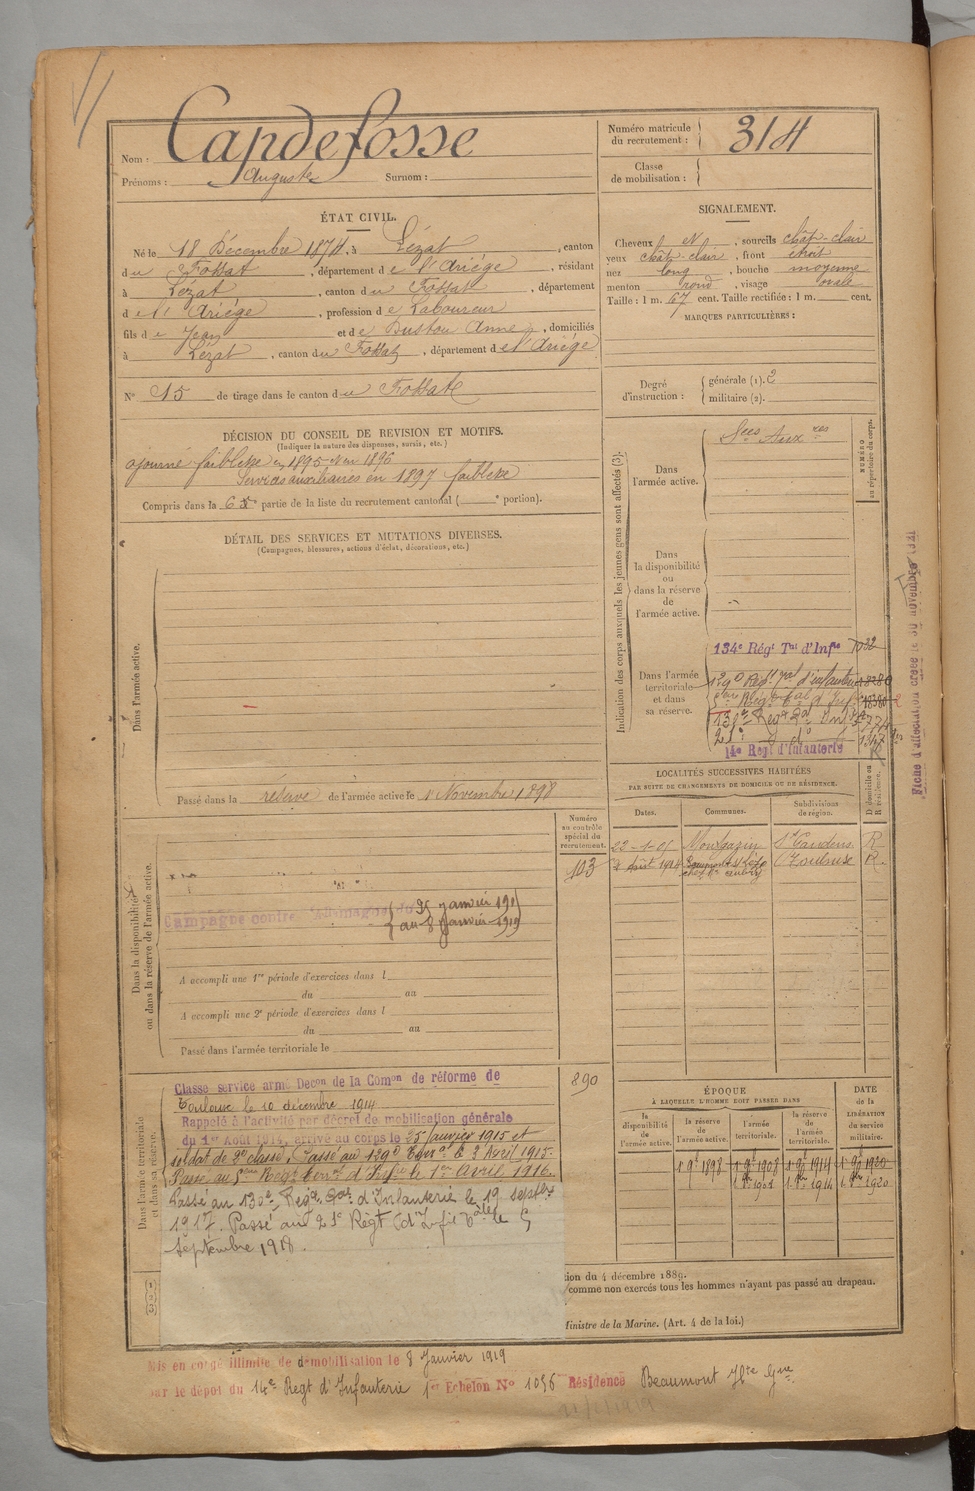 Nom : Capdefosse
Prénoms : Auguste Surnom :
Numéro matricule du recrutement : 314
Classe de mobilisation :
ÉTAT CIVIL.
Né le 18 Décembre 1874, à Lézat, canton
du Fossat, département de l'Ariège, résidant
à Lézat, canton du Fossat, département
de l'Ariège, profession de Laboureur
fils de Jean et de Dustou Anne, domiciliés
à Lézat, canton du Fossat, département de l'Ariège
N° 15 de tirage dans le canton du Fossat
SIGNALEMENT.
Cheveux N, sourcils chât-clair
yeux chât-clair, front étroit
nez long, bouche moyenne
menton rond, visage ovale
Taille : 1 m. 67 cent. Taille rectifiée : 1 m. cent.
MARQUES PARTICULIÈRES :
Degré d'instruction : générale (1). 2
militaire (2).
DÉCISION DU CONSEIL DE REVISION ET MOTIFS.
(Indiquer la nature des dispenses, sursis, etc.)
ajourné faiblesse en 1895 et en 1896
Services auxiliaires en 1897 faiblesse
Compris dans la 6e partie de la liste du recrutement cantonal ( e portion).
DÉTAIL DES SERVICES ET MUTATIONS DIVERSES.
(Campagnes, blessures, actions d'éclat, décorations, etc.)
Dans l'armée active.
Passé dans la réserve de l'armée active le 1 Novembre 1898
Indication des corps auxquels les jeunes gens sont affectés (3).
NUMÉRO au répertoire du corps.
Dans l'armée active.
Sces Auxres
Dans la disponibilité ou dans la réserve de l'armée active.
Dans l'armée territoriale et dans sa réserve.
134e Régt Tal d'Infie
129e Régt Tal d'infanterie
5ème Régt Tal d'Inf
130e Regt Tal Inf
21e d° d°
14e Regt d'Infanterie
Fiche d'affectation créée le 30 novembre 1921
LOCALITÉS SUCCESSIVES HABITÉES
PAR SUITE DE CHANGEMENTS DE DOMICILE OU DE RÉSIDENCE.
Dates. Communes. Subdivisions de région. D domicile ou R résidence.
22-1-01 Montgazin St Gaudens R
août 1914 Beaumont s/ Lèze Toulouse R.
Dans la disponibilité ou dans la réserve de l'armée active.
Numéro au contrôle spécial du recrutement.
103
Campagne contre l'Allemagne du 25 janvier 1915
au 8 Janvier 1919
A accompli une 1re période d'exercices dans l
du au
A accompli une 2e période d'exercices dans l
du au
Passé dans l'armée territoriale le
Dans l'armée territoriale et dans sa réserve.
890
Classé service armé Decon de la Comon de réforme de
Toulouse le 10 décembre 1914
Rappelé à l'activité par décret de mobilisation générale
du 1er Août 1914, arrivé au corps le 25 janvier 1915 et
soldat de 2e classe, Passé au 129e Terral le 3 Avril 1915.
Passé au 5ème Régt Terral d'Infie le 1er Avril 1916.
Passé au 130e Regt Tal d'Infanterie le 19 septbre
1917. Passé au 21e Régt d'Infie Tale le 5
septembre 1918.
ÉPOQUE
À LAQUELLE L'HOMME DOIT PASSER DANS
DATE DE LA LIBÉRATION DU service militaire.
la disponibilité de l'armée active. la réserve de l'armée active. l'armée territoriale. la réserve de l'armée territoriale.
1 9e 1898 1 9e 1908 1 9e 1914 1 9e 1920
ion du 4 décembre 1889.
comme non exercés tous les hommes n'ayant pas passé au drapeau.
Ministre de la Marine. (Art. 4 de la loi.)
Mis en congé illimité de démobilisation le 8 Janvier 1919
par le dépôt du 14e Regt d'Infanterie 1er Echelon N° 1056 Résidence Beaumont Hte Gne.